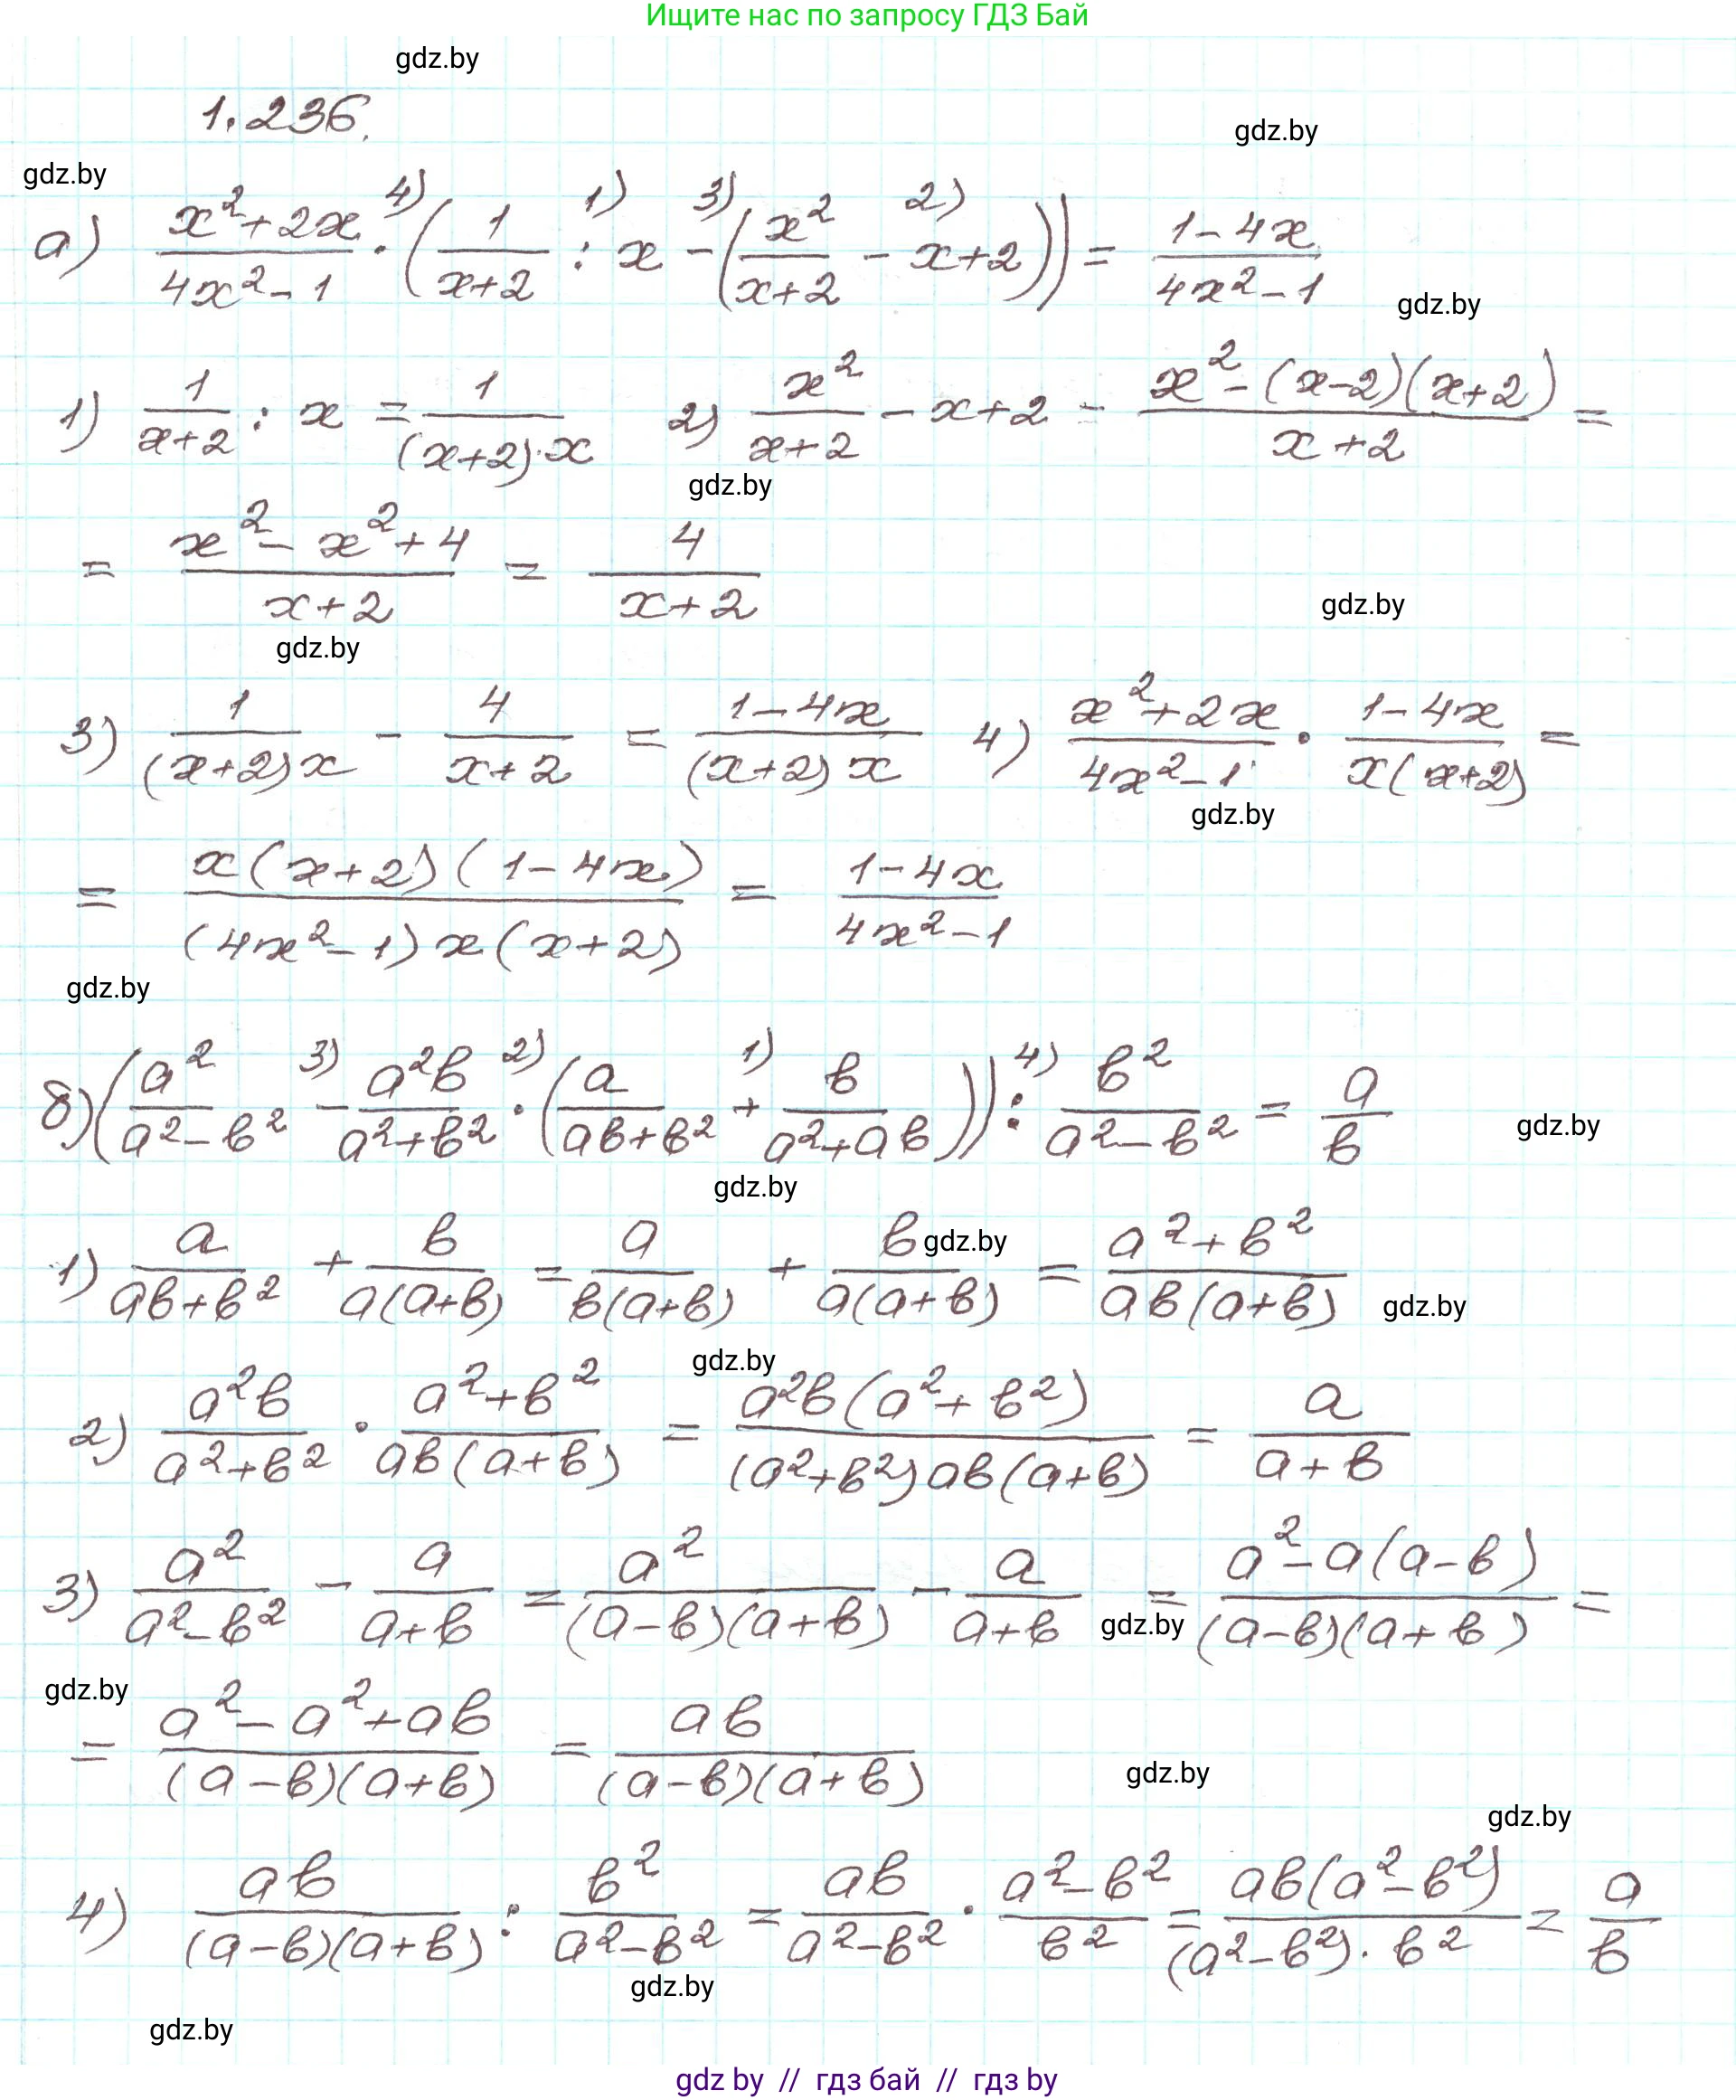 Ищите нас по запросу ГДЗ Бай
gdz.by
1.236.
gdz.by
gdz.by
4) 1) 3) 2)
а) (x²+2x)/(4x²-1) · (1/(x+2) : x - (x²/(x+2) - x+2)) = (1-4x)/(4x²-1)
gdz.by
1) 1/(x+2) : x = 1/((x+2)·x) 2) x²/(x+2) - x+2 = (x²-(x-2)(x+2))/(x+2) =
gdz.by
= (x²-x²+4)/(x+2) = 4/(x+2)
gdz.by
gdz.by
3) 1/((x+2)x) - 4/(x+2) = (1-4x)/((x+2)x) 4) (x²+2x)/(4x²-1) · (1-4x)/(x(x+2)) =
gdz.by
= (x(x+2)(1-4x))/((4x²-1)x(x+2)) = (1-4x)/(4x²-1)
gdz.by
3) 2) 1) 4)
б) (a²/(a²-b²) - a²b/(a²+b²) · (a/(ab+b²) + b/(a²+ab))) : b²/(a²-b²) = a/b
gdz.by
gdz.by
1) a/(ab+b²) + b/(a(a+b)) = a/(b(a+b)) + b/(a(a+b)) = (a²+b²)/(ab(a+b))
gdz.by
gdz.by
gdz.by
2) a²b/(a²+b²) · (a²+b²)/(ab(a+b)) = (a²b(a²+b²))/((a²+b²)ab(a+b)) = a/(a+b)
3) a²/(a²-b²) - a/(a+b) = a²/((a-b)(a+b)) - a/(a+b) = (a²-a(a-b))/((a-b)(a+b)) =
gdz.by
gdz.by
= (a²-a²+ab)/((a-b)(a+b)) = ab/((a-b)(a+b))
gdz.by
gdz.by
4) ab/((a-b)(a+b)) : b²/(a²-b²) = ab/(a²-b²) · (a²-b²)/b² = (ab(a²-b²))/((a²-b²)·b²) = a/b
gdz.by
gdz.by
gdz by // гдз бай // гдз by